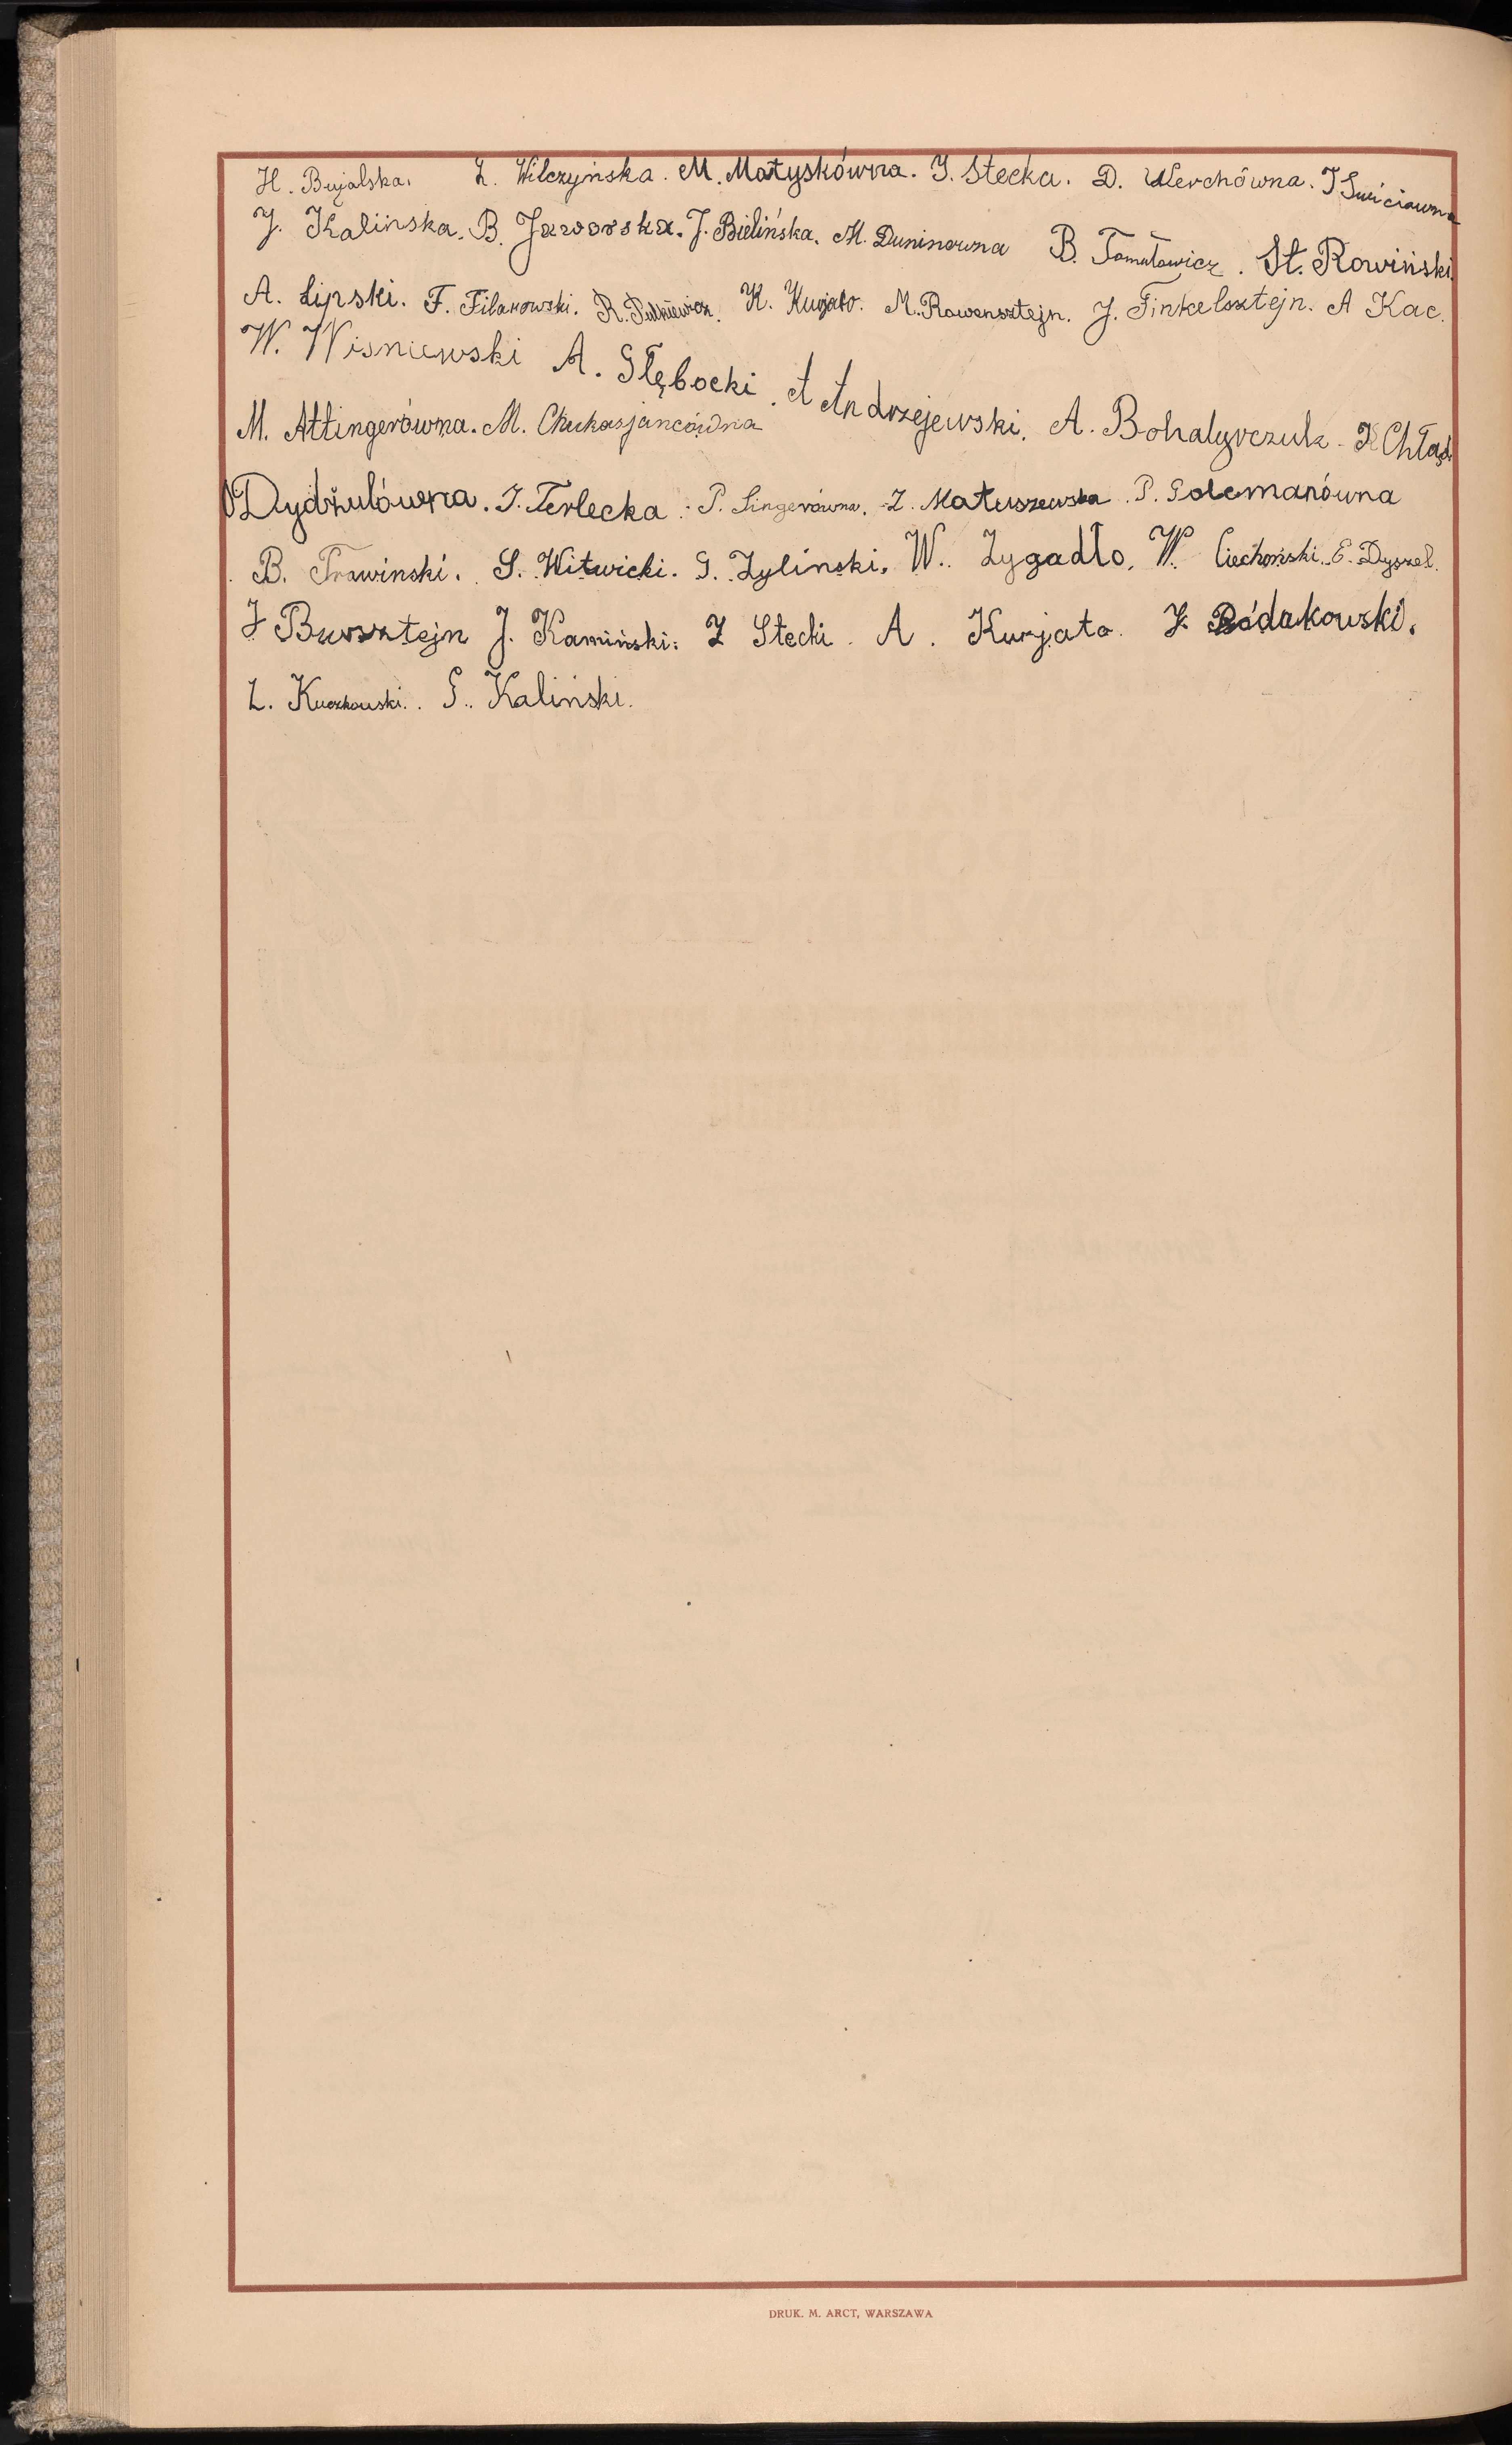 H. Bujalska. Z. Wilczyńska. M. Matyskówna. J. Stecka. D. Werchówna. J
J. Kalińska. B. Jaworska. J. Bielińska. M. Duninówna B. St. Rowiński
A. Lipski. F. Filanowski. R. K. Kurjato. M. Rawensztejn. J. Finkelsztejn. A Kac.
W. Wiśniewski A. Głębocki. A Andrzejewski. A. Bohatyrczuk
M. Attingerówna. M.
O Dydziulówna. J. Terlecka. P. Singerówna. Z. Matuszewska. P. Golemanówna
B. Trawinski. S. Witwicki. G. Zylinski. W. Zygadło. W. Ciechoński. E. Dyszel.
J Bursztejn J. Kamiński. Z Stecki. A. Kurjato. J.
L. Kuczkowski. G. Kaliński.
DRUK. M. ARCT, WARSZAWA